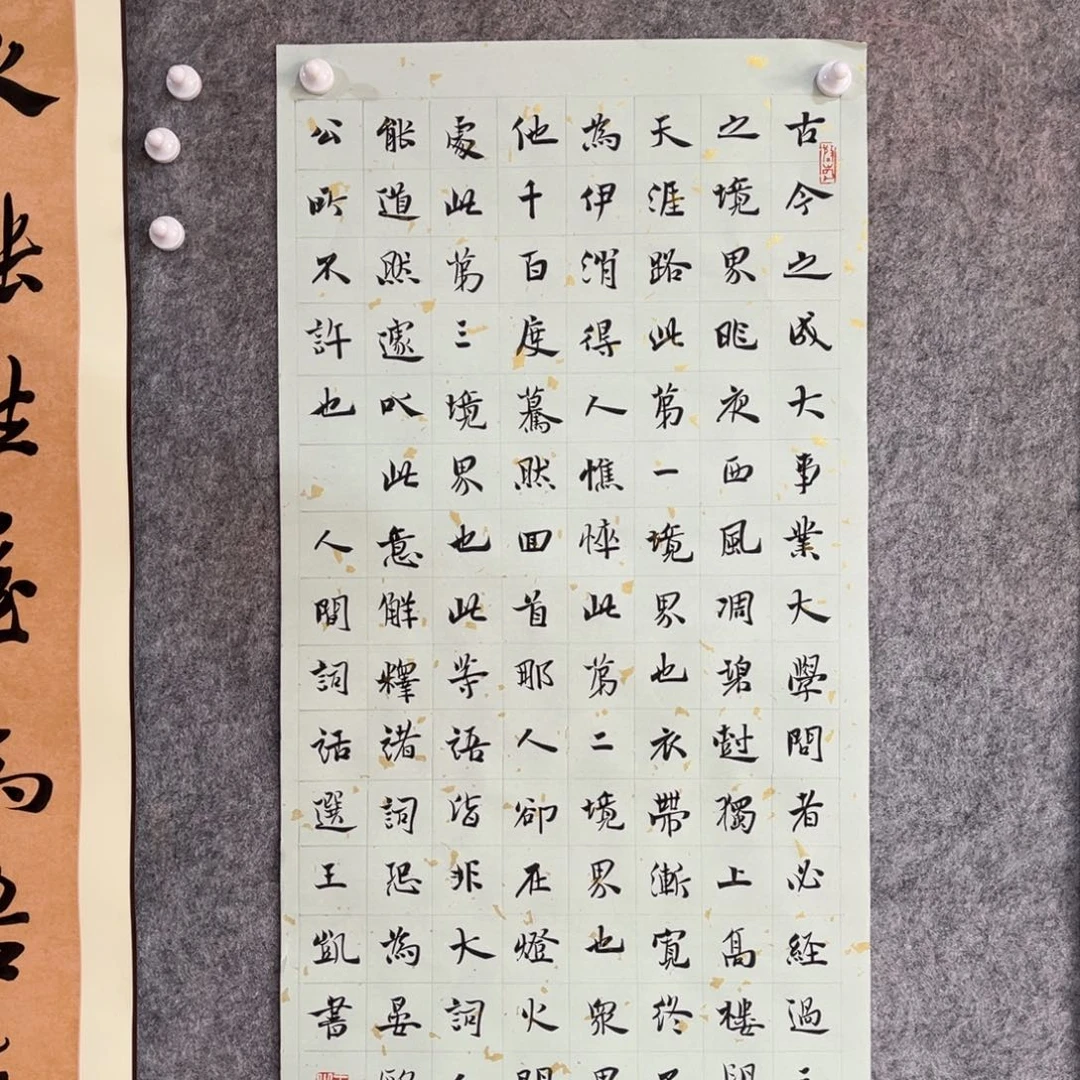 古今之成大事業大學問者必經過三
之境界昨夜西風凋碧樹獨上高樓
天涯路此第一境界也衣帶漸寬終
為伊消得人憔悴此第二境界也衆
他千百度驀然回首那人卻在燈火
處此第三境界也此等語皆非大詞
能道然遽以此意解釋諸詞恐為晏
公所不許也 人間詞話選王凱書